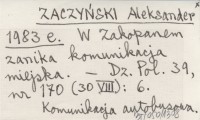 ZACZYŃSKI Aleksander
1983 e. W Zakopanem
zanika komunikacja
miejska. – Dz. Pol. 39,
nr 170 (30 VIII): 6.
Komunikacja autobusowa.